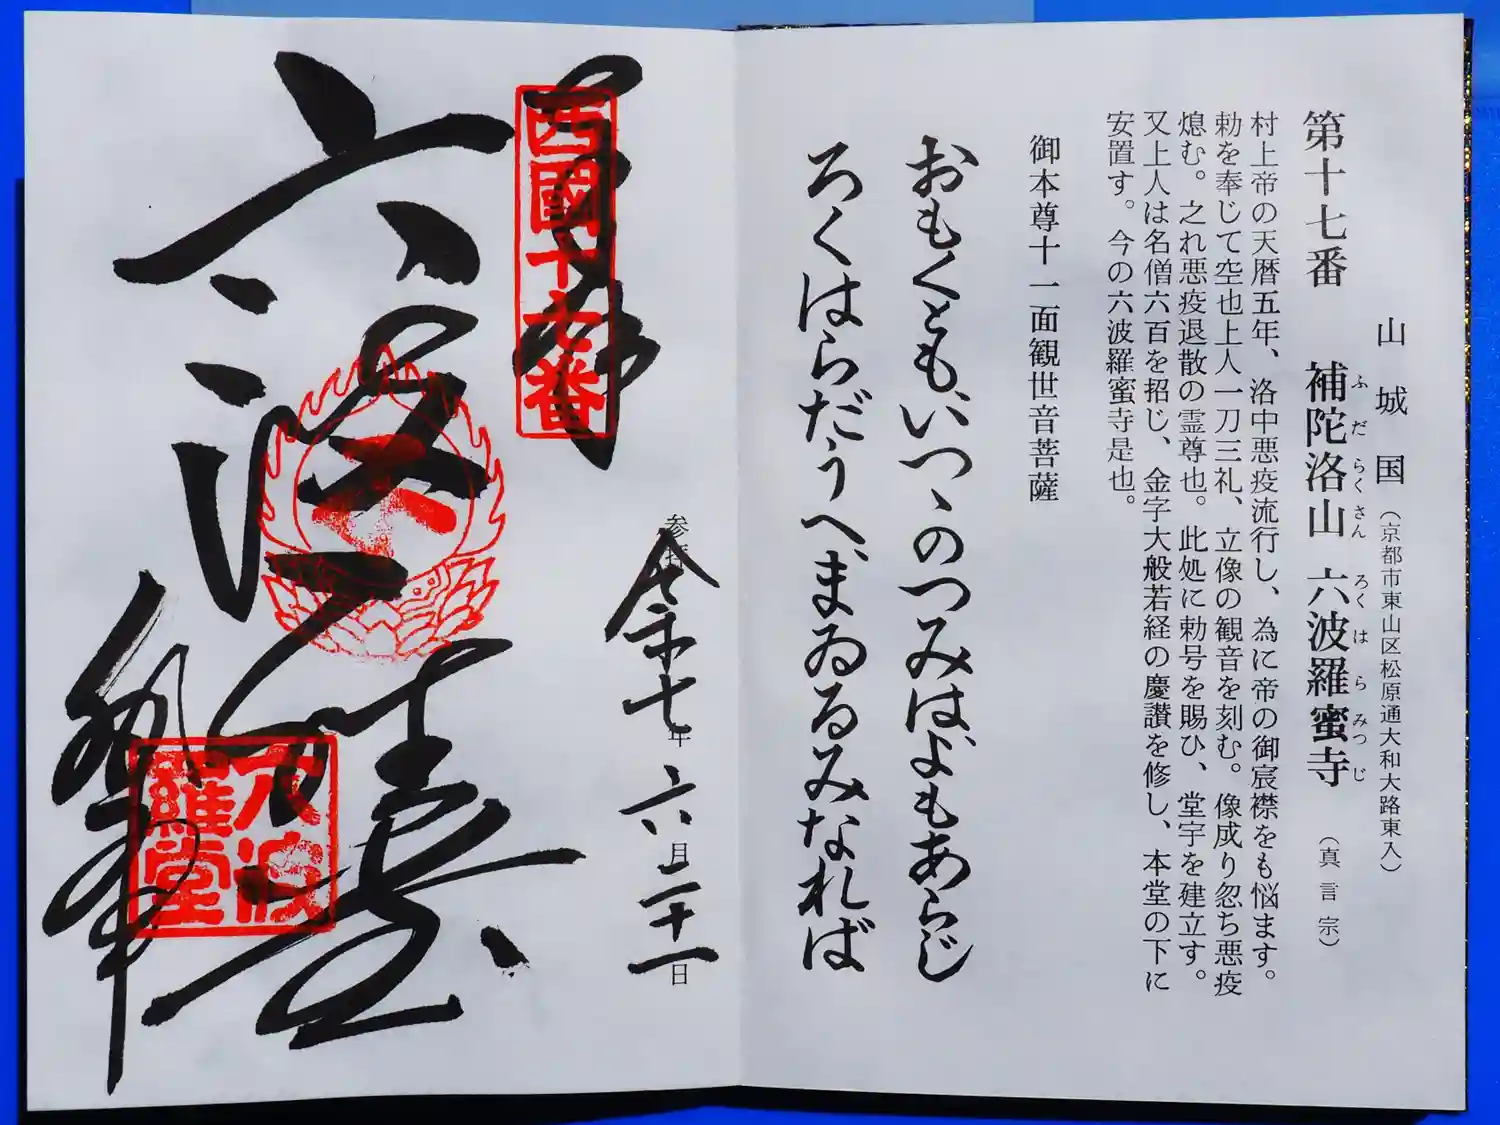 山城国（京都市東山区松原通大和大路東入）
第十七番 補陀洛山 六波羅蜜寺 （真言宗）
ふだらくさん ろくはらみつじ
村上帝の天暦五年、洛中悪疫流行し、為に帝の御宸襟をも悩ます。
勅を奉じて空也上人一刀三礼、立像の観音を刻む。像成り忽ち悪疫
熄む。之れ悪疫退散の霊尊也。此処に勅号を賜ひ、堂宇を建立す。
又上人は名僧六百を招じ、金字大般若経の慶讃を修し、本堂の下に
安置す。今の六波羅蜜寺是也。
御本尊十一面観世音菩薩
おもくとも、いつゝのつみは、よもあらじ
ろくはらだうへ、まゐるみなれば
参拝
令和七年六月二十一日
奉拝
西國十七番
六波羅蜜寺
六波
羅堂